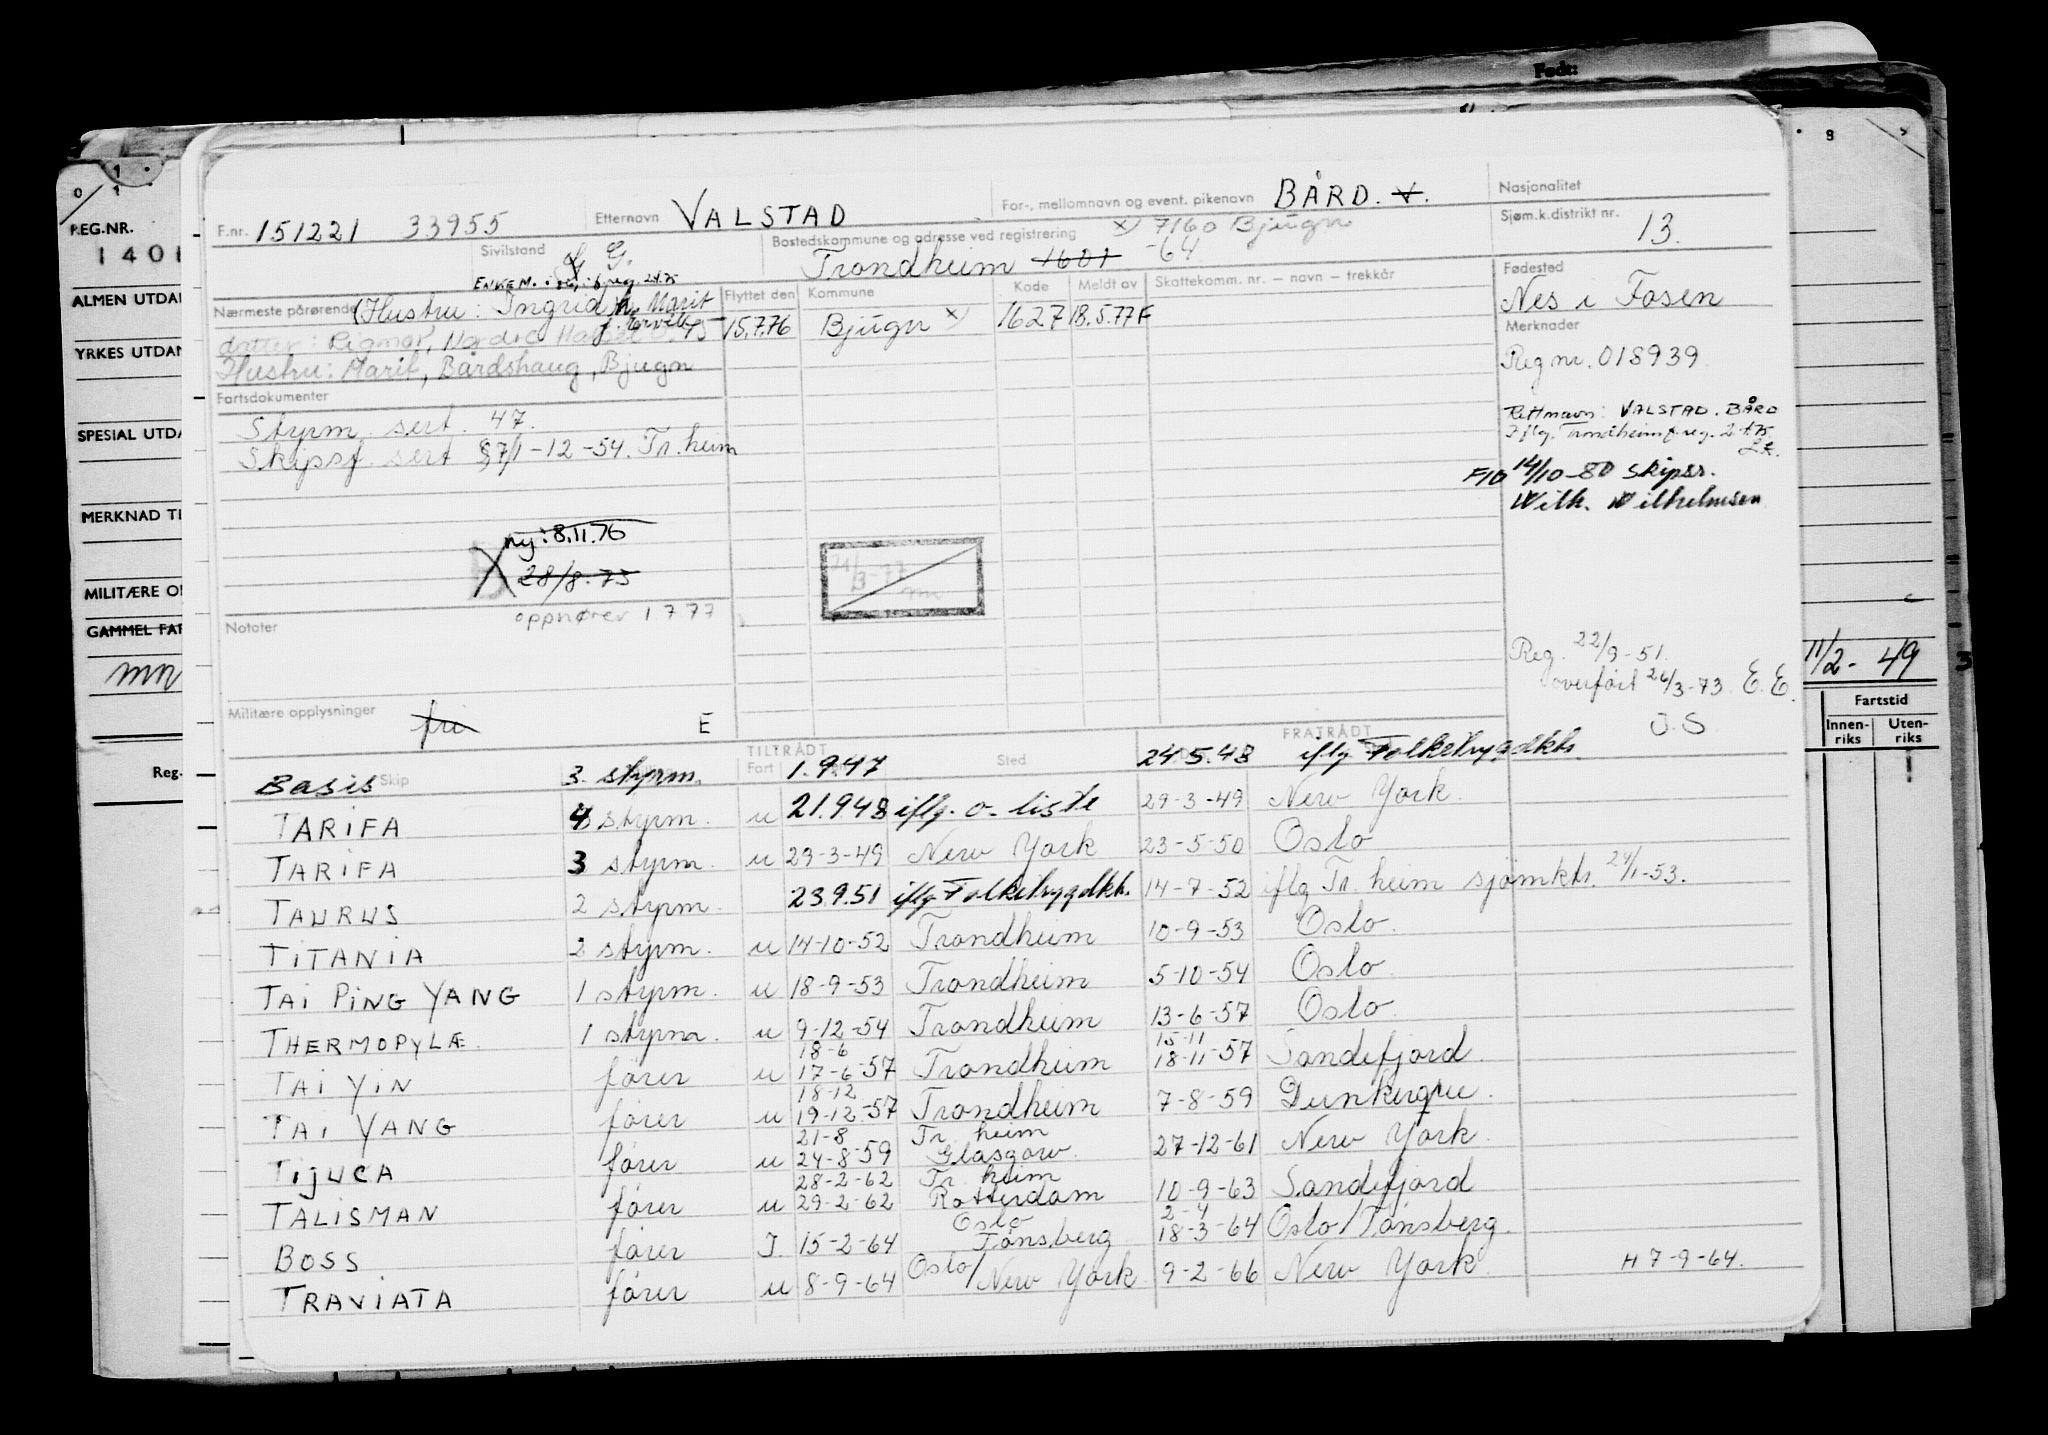 Født:
REG.NR.
1401
ALMEN UTDA
YRKES UTDAN
SPESIAL UTDA
MERKNAD TI
MILITÆRE O
GAMMEL FAR
mn
Reg.
11/2 - 49
Fartstid
Innen-riks Uten-riks
F.nr. 151221 33955 Etternavn VALSTAD For-, mellomnavn og event. pikenavn BÅRD. V. Nasjonalitet
Sivilstand G.
ENKEM.
Bostedskommune og adresse ved registrering x) 7160 Bjugn
Trondheim 1601 -64
Sjøm.k.distrikt nr. 13.
Nærmeste pårørende (Hustru: Ingrid Marit
datter: Rigmor, Nordre
Hustru: Marit, Bårdshaug, Bjugn
Flyttet den Kommune Kode Meldt av Skattekomm. nr. – navn – trekkår
15.7.76 Bjugn x) 1627 18.5.77 F
Fødested
Nes i Fosen
Merknader
Reg nr. 018939
Rettnavn: VALSTAD. BÅRD
Iflg. Trondheim f.reg. 2.1.75
F10 14/10-80 skipsr.
Wilh. Wilhelmsen
Reg. 22/9-51.
overført 26/3-73 E.E.
J.S
Fartsdokumenter
Styrm. sert. 47.
Skipsf. sert §7/1-12-54. Tr.heim
ny: 8.11.76
X 28/8-75
opphører 1 7 77
21/3-77
Notater
Militære opplysninger fri E
Skip TILTRÅDT Fart Sted FRATRÅDT
Basis 3. styrm. 1.9.47 24.5.48 iflg Folketrygdkt.
TARIFA 4 styrm. u 21.9.48 iflg. o-liste 29-3-49 New York
TARIFA 3 styrm. u 29-3-49 New York 23-5-50 Oslo
TAURUS 2 styrm. 23.9.51 iflg Folketrygdkt. 14-7-52 iflg Tr.heim sjømkt. 24/1-53.
TITANIA 2 styrm. u 14-10-52 Trondheim 10-9-53 Oslo.
TAI PING YANG 1 styrm. u 18-9-53 Trondheim 5-10-54 Oslo
THERMOPYLÆ. 1 styrm. u 9-12-54 Trondheim 13-6-57 Oslo.
18-6 15-11
TAI YIN fører u 17-6-57 Trondheim 18-11-57 Sandefjord.
18-12
TAI YANG fører u 19-12-57 Trondheim 7-8-59 Dunkerque.
21-8 Tr. heim
TIJUCA fører u 24-8-59 Glasgow. 27-12-61 New York.
28-2-62 Tr. heim
TALISMAN fører u 29-2-62 Rotterdam 10-9-63 Sandefjord
Oslo 2-4
BOSS fører I. 15-2-64 Tønsberg 18-3-64 Oslo/Tønsberg.
TRAVIATA fører u 8-9-64 Oslo/New York 9-2-66 New York. H 7-9-64.